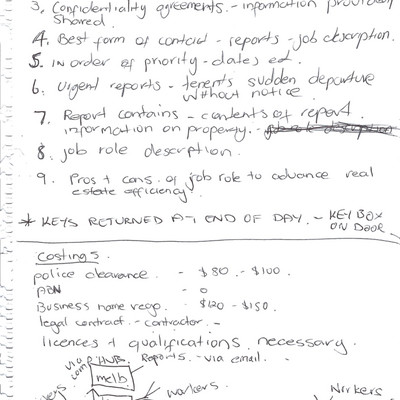 3, Confidentiality agreements. - information provided
Shared.
4. Best form of contact - reports - job description.
5. in order of priority - dates ect.
6. Urgent reports - tenents sudden departure
without notice.
7. Report contains - contents of report.
information on property. -
8. job role description.
9. Pros + cons. of job role to advance real
estate efficiency.
* KEYS RETURNED AT END OF DAY. - KEY BOX
ON DOOR
Costings.
police clearance. - $80 - $100.
ABN - 0
Business name rego. - $120 - $150.
legal contract - contractor. -
licences + qualifications necessary.
via P.HUB. Reports. - via email. -
com
melb
workers.
Workers